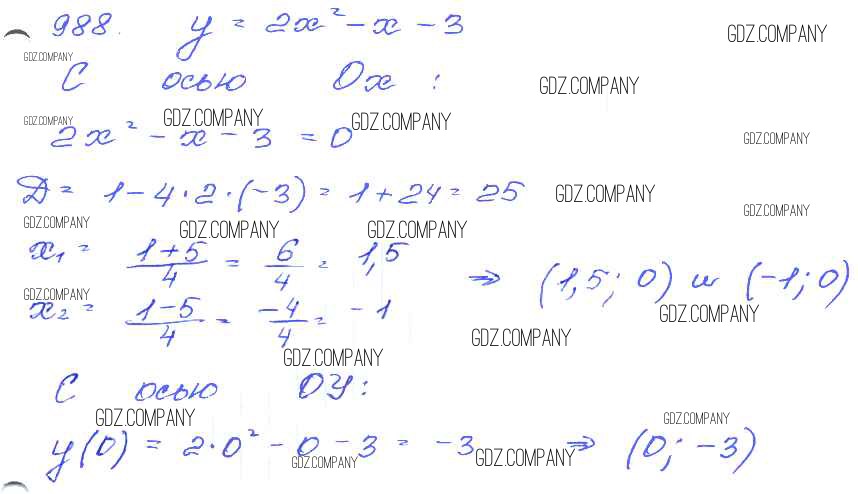 988. y = 2x² - x - 3
GDZ.COMPANY
GDZ.COMPANY
С осью Ox :
GDZ.COMPANY
GDZ.COMPANY
GDZ.COMPANY
GDZ.COMPANY
2x² - x - 3 = 0
GDZ.COMPANY
Д = 1 - 4 · 2 · (-3) = 1 + 24 = 25
GDZ.COMPANY
GDZ.COMPANY
GDZ.COMPANY
GDZ.COMPANY
GDZ.COMPANY
x₁ = (1+5)/4 = 6/4 = 1,5
⇒ (1,5; 0) и (-1; 0)
GDZ.COMPANY
x₂ = (1-5)/4 = -4/4 = -1
GDZ.COMPANY
GDZ.COMPANY
GDZ.COMPANY
С осью OУ:
GDZ.COMPANY
GDZ.COMPANY
y(0) = 2·0² - 0 - 3 = -3 ⇒ (0; -3)
GDZ.COMPANY
GDZ.COMPANY